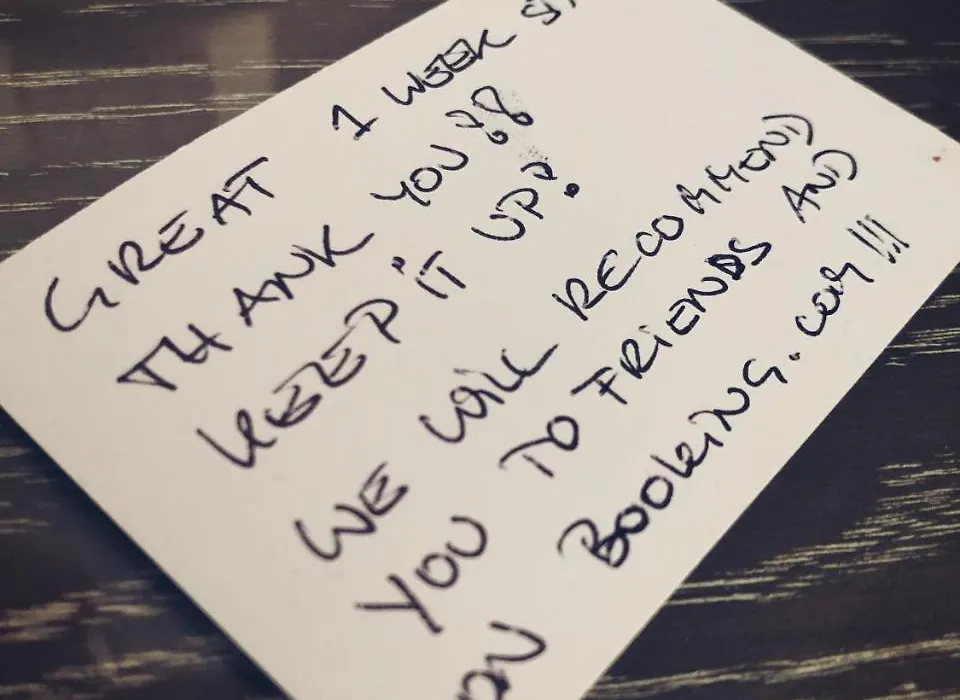 GREAT 1 WEEK
THANK YOU!!
KEEP IT UP!
WE WILL RECOMMEND
YOU TO FRIENDS AND
ON BOOKING.COM!!!